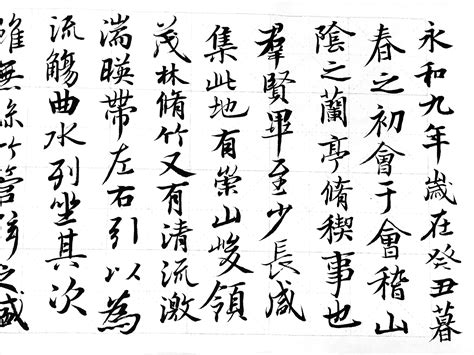 永和九年歲在癸丑暮
春之初會于會稽山
陰之蘭亭脩稧事也
羣賢畢至少長咸
集此地有崇山峻領
茂林脩竹又有清流激
湍暎帶左右引以為
流觴曲水列坐其次
雖無絲竹管弦之盛